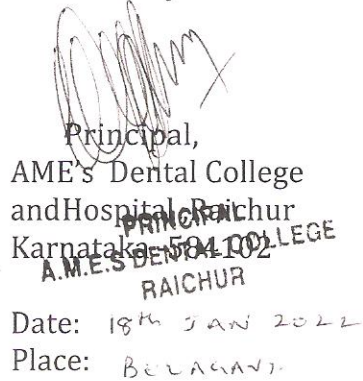 Principal,
AME's Dental College
andHospital, Raichur
Karnataka-584102
PRINCIPAL
A.M.E.S DENTAL COLLEGE
RAICHUR
Date: 18th JAN 2022
Place: BELAGAVI.